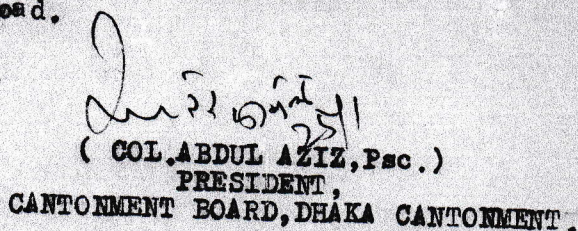 oad.
২৫/১
( COL.ABDUL AZIZ,Psc.)
PRESIDENT,
CANTONMENT BOARD,DHAKA CANTONMENT.